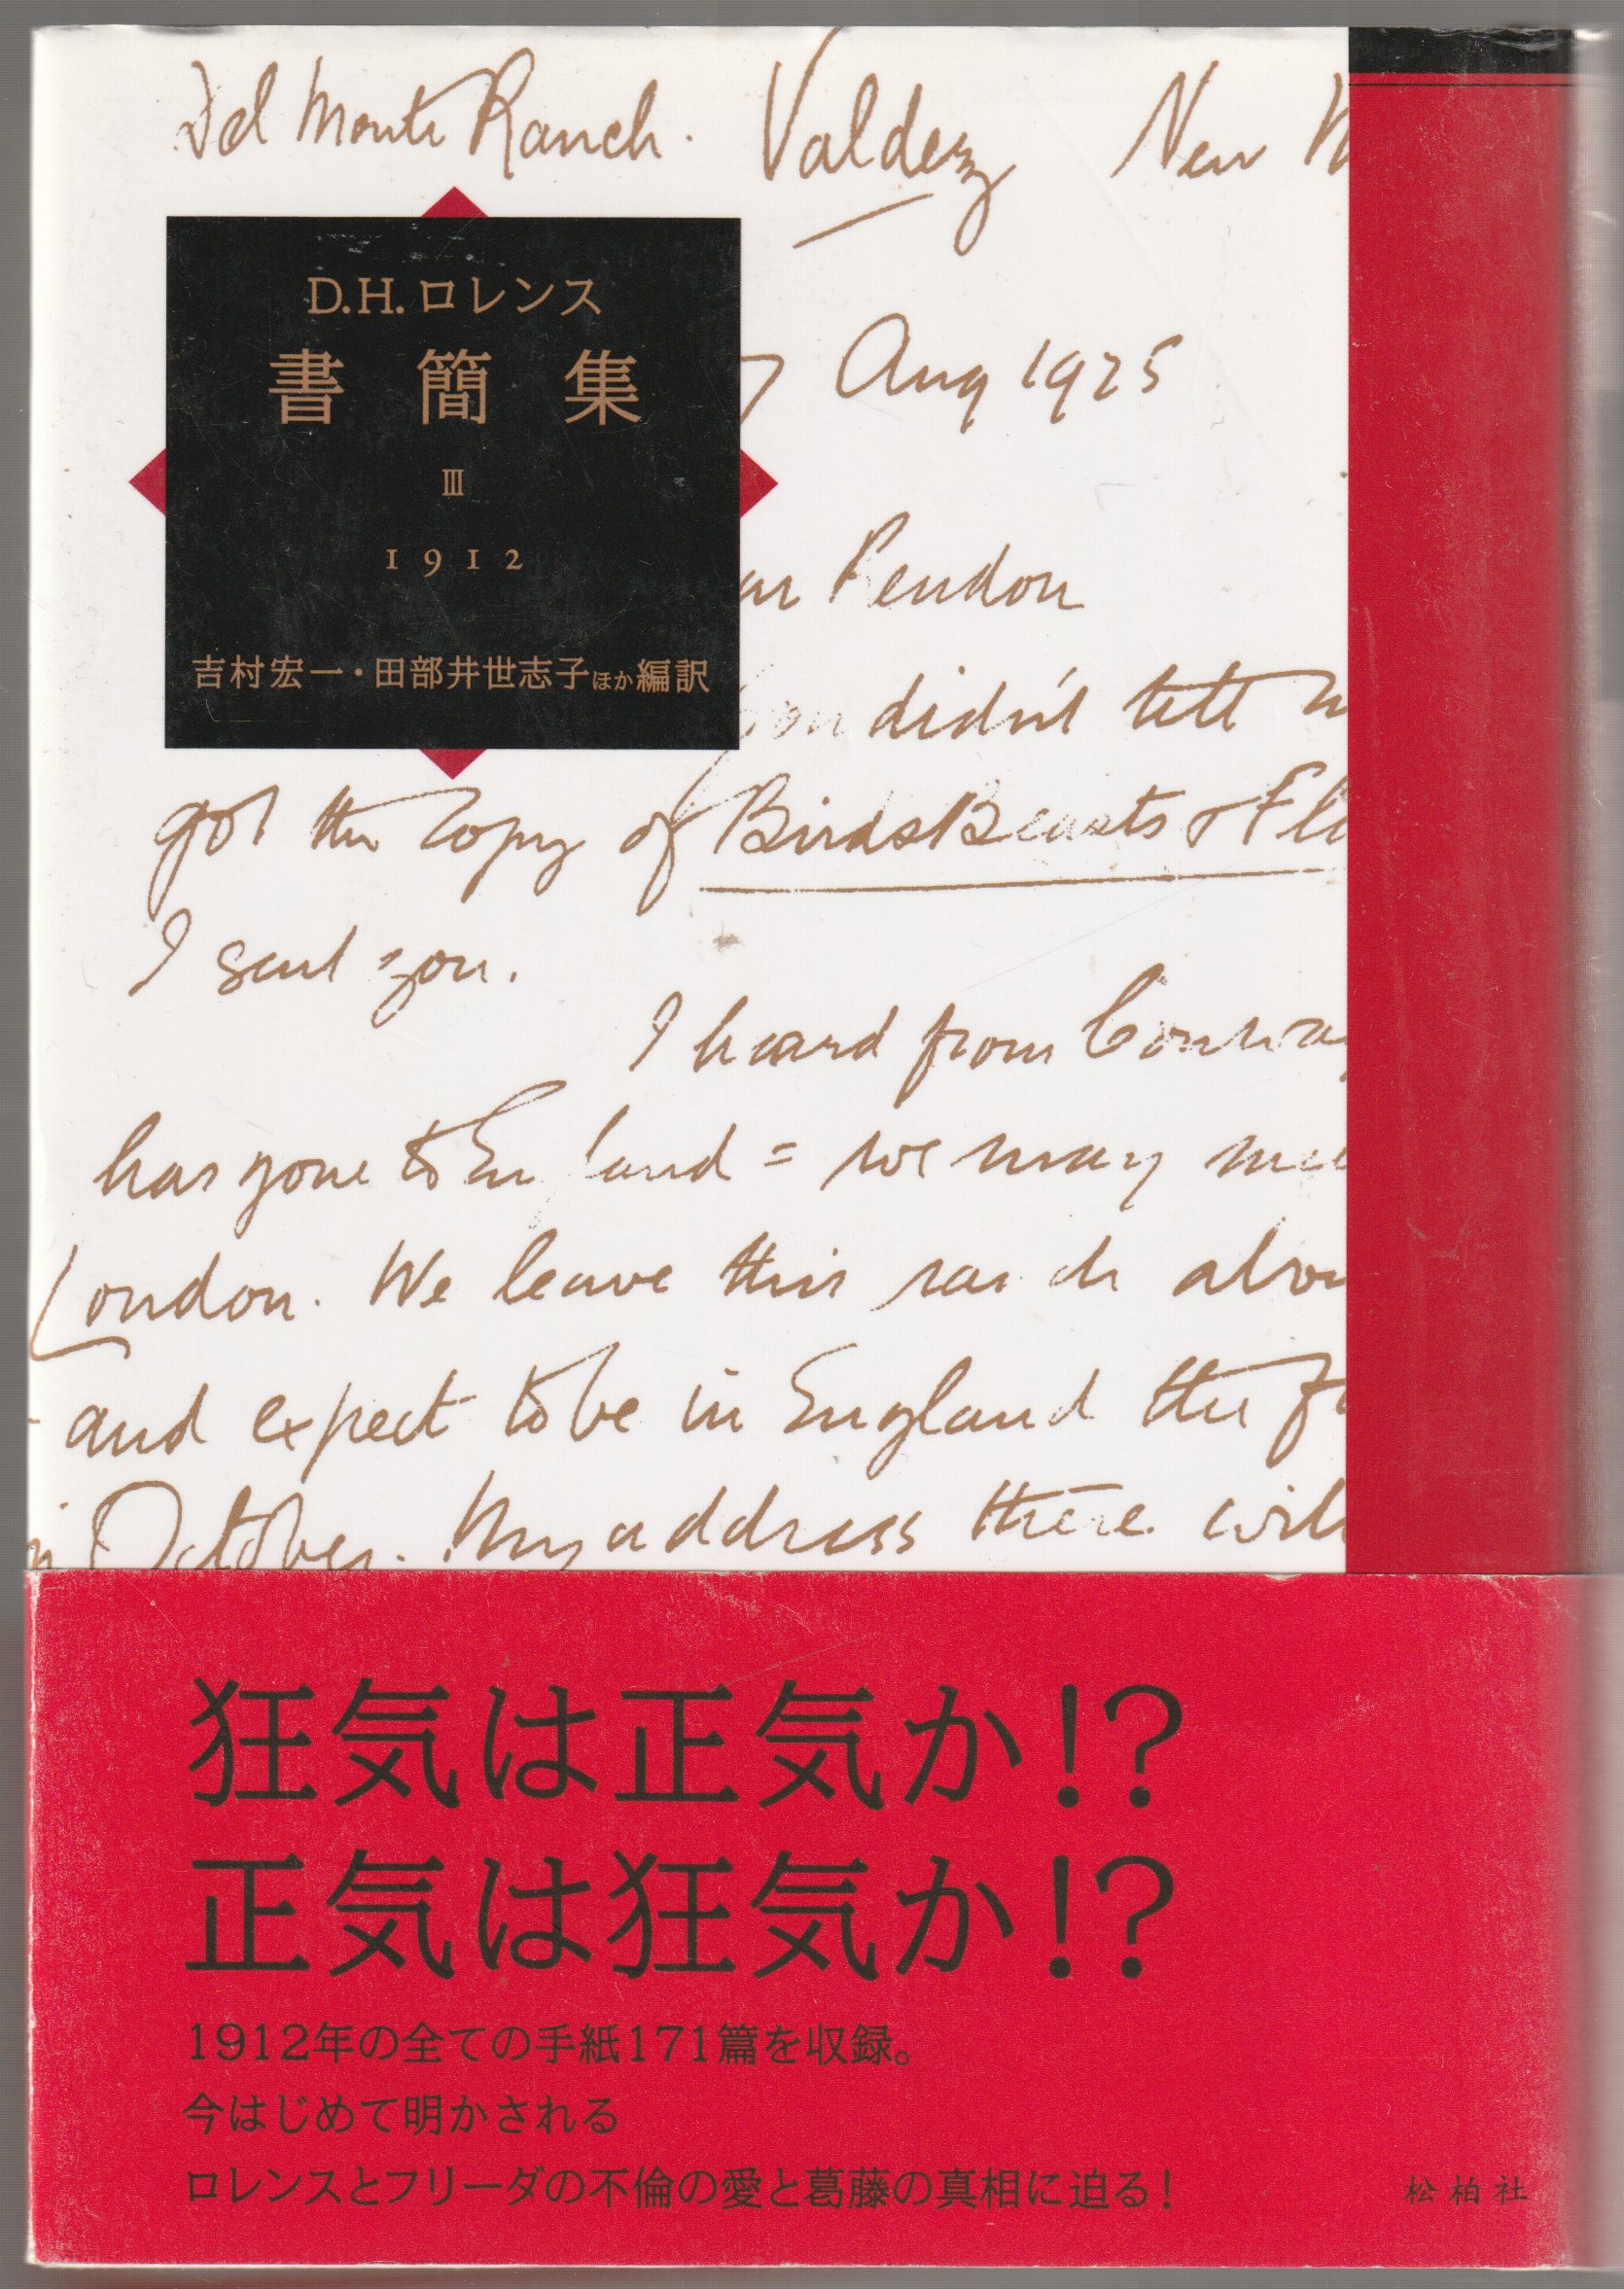 Del Monte Ranch. Valdez New M
D.H.ロレンス
書簡集
III
1912
吉村宏一・田部井世志子ほか編訳
7 Aug 1925
ar Rendon
You didn't tell m
got the copy of Birds Beasts & Flo
I sent you.
I heard from Conway
has gone to England = we may mee
London. We leave this ranch abou
and expect to be in England the fi
in October. My address there will
狂気は正気か!?
正気は狂気か!?
1912年の全ての手紙171篇を収録。
今はじめて明かされる
ロレンスとフリーダの不倫の愛と葛藤の真相に迫る!
松柏社